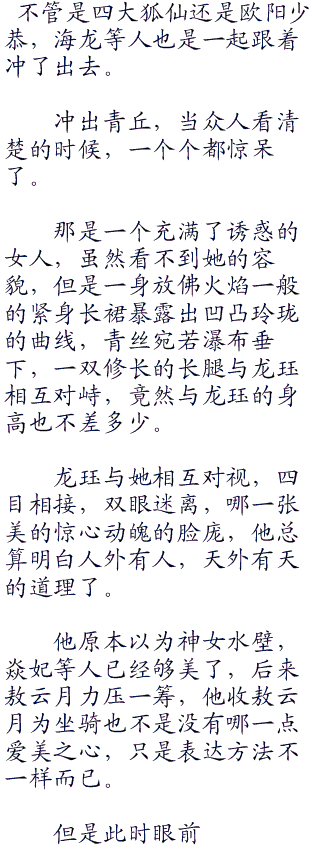 不管是四大狐仙还是欧阳少
恭，海龙等人也是一起跟着
冲了出去。
冲出青丘，当众人看清
楚的时候，一个个都惊呆
了。
那是一个充满了诱惑的
女人，虽然看不到她的容
貌，但是一身放佛火焰一般
的紧身长裙暴露出凹凸玲珑
的曲线，青丝宛若瀑布垂
下，一双修长的长腿与龙珏
相互对峙，竟然与龙珏的身
高也不差多少。
龙珏与她相互对视，四
目相接，双眼迷离，哪一张
美的惊心动魄的脸庞，他总
算明白人外有人，天外有天
的道理了。
他原本以为神女水壁，
焱妃等人已经够美了，后来
敖云月力压一筹，他收敖云
月为坐骑也不是没有哪一点
爱美之心，只是表达方法不
一样而已。
但是此时眼前